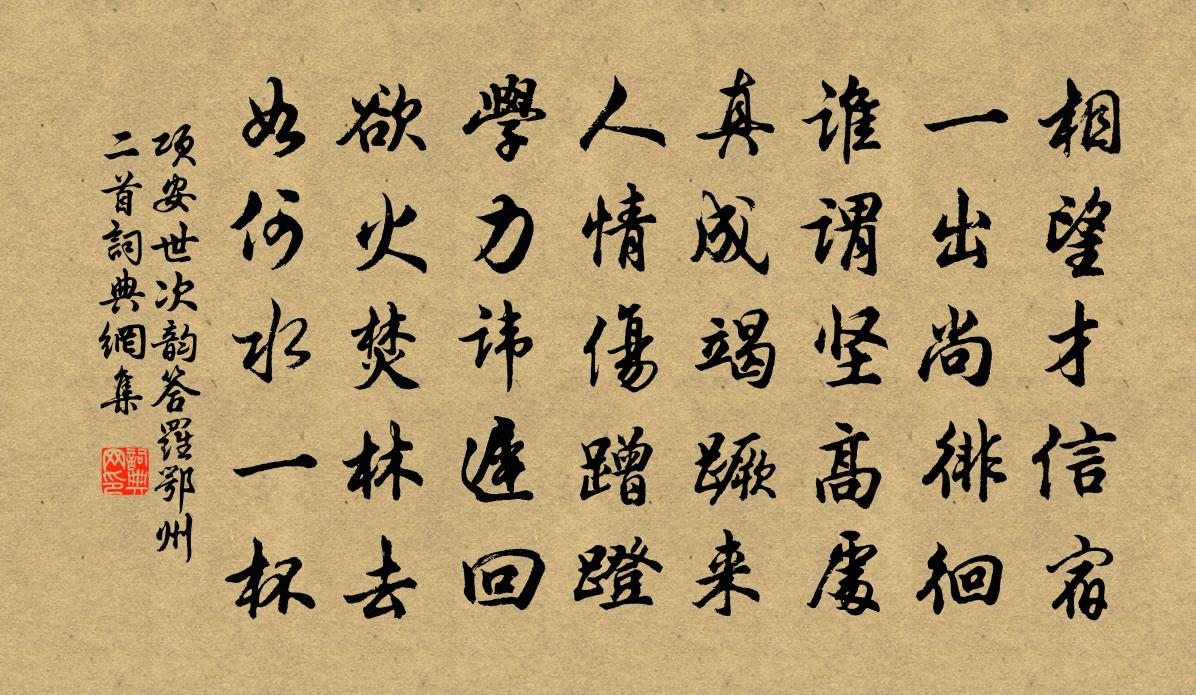 相望才信宿
一出尚徘徊
谁謂坚高處
真成竭蹶来
人情傷蹭蹬
學力讳遲回
欲火焚林去
如何水一杯
项安世次韵答羅鄂州
二首詞典網集
詞典
网印